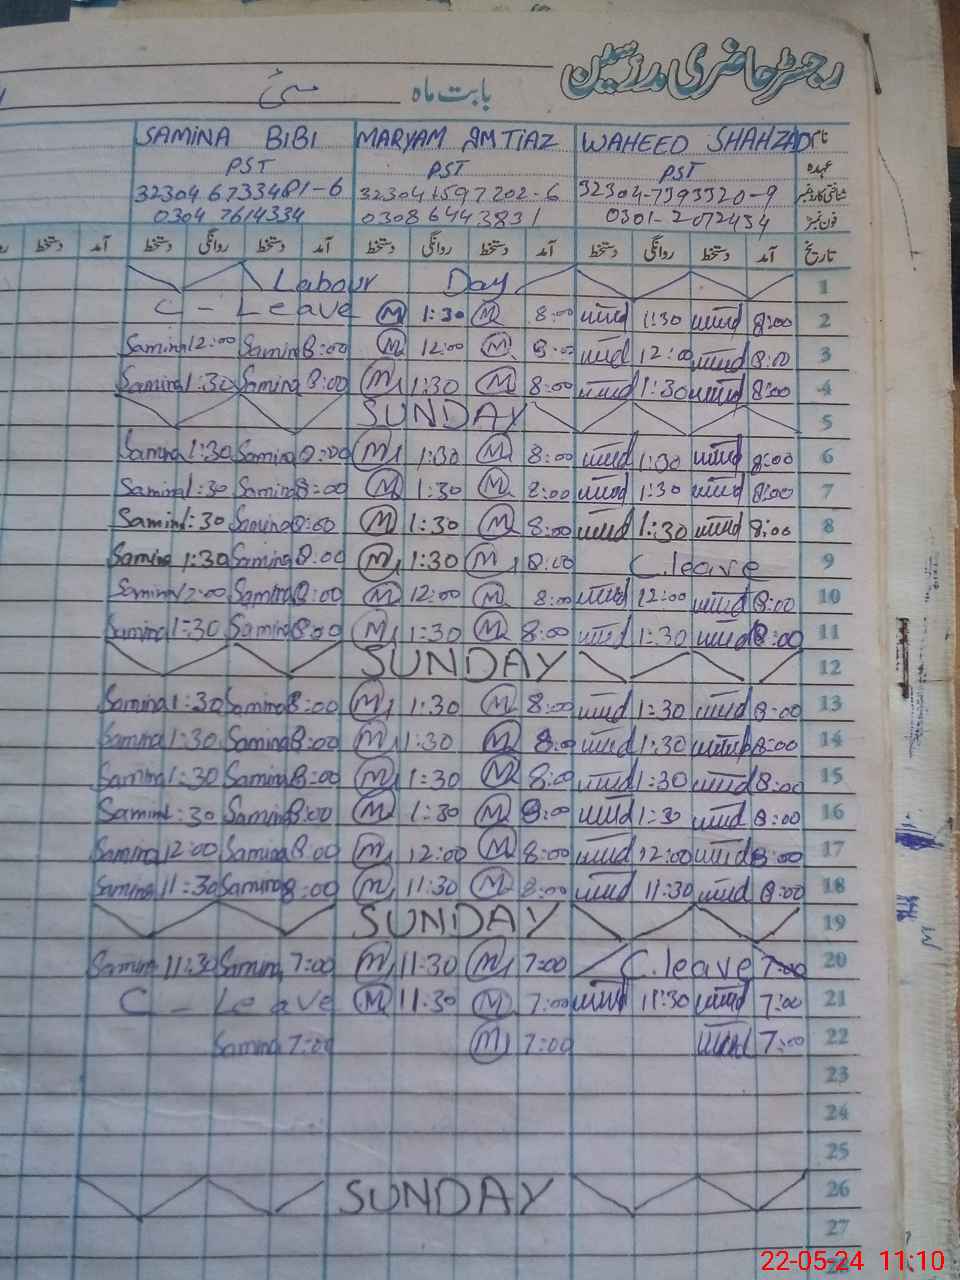 رجسٹر حاضری مدرسین
بابت ماہ مئی
SAMINA BIBI MARYAM IMTIAZ WAHEED SHAHZAD نام
PST PST PST عہدہ
32304 6733481-6 32304 1597202-6 32304-7393320-9 شناختی کارڈ نمبر
0304 7614334 0308 6443831 0301-2072454 فون نمبر
دستخط آمد دستخط روانگی دستخط آمد دستخط روانگی دستخط آمد دستخط روانگی دستخط آمد تاریخ
Labour Day 1
C - Leave M 1:30 M 8:00 1:30 8:00 2
Samina 12:00 Samina 8:00 M 12:00 M 8:00 12:00 8:00 3
Samina 1:30 Samina 8:00 M 1:30 M 8:00 1:30 8:00 4
SUNDAY 5
Samina 1:30 Samina 8:00 M 1:30 M 8:00 1:30 8:00 6
Samina 1:30 Samina 8:00 M 1:30 M 8:00 1:30 8:00 7
Samina 1:30 Samina 8:00 M 1:30 M 8:00 1:30 8:00 8
Samina 1:30 Samina 8:00 M 1:30 M 8:00 C.leave 9
Samina 12:00 Samina 8:00 M 12:00 M 8:00 12:00 8:00 10
Samina 1:30 Samina 8:00 M 1:30 M 8:00 1:30 8:00 11
SUNDAY 12
Samina 1:30 Samina 8:00 M 1:30 M 8:00 1:30 8:00 13
Samina 1:30 Samina 8:00 M 1:30 M 8:00 1:30 8:00 14
Samina 1:30 Samina 8:00 M 1:30 M 8:00 1:30 8:00 15
Samina 1:30 Samina 8:00 M 1:30 M 8:00 1:30 8:00 16
Samina 12:00 Samina 8:00 M 12:00 M 8:00 12:00 8:00 17
Samina 11:30 Samina 8:00 M 11:30 M 8:00 11:30 8:00 18
SUNDAY 19
Samina 11:30 Samina 7:00 M 11:30 M 7:00 C.leave 7:00 20
C - Leave M 11:30 M 7:00 11:30 7:00 21
Samina 7:00 M 7:00 7:00 22
23
24
25
SUNDAY 26
27
28
22-05-24 11:10